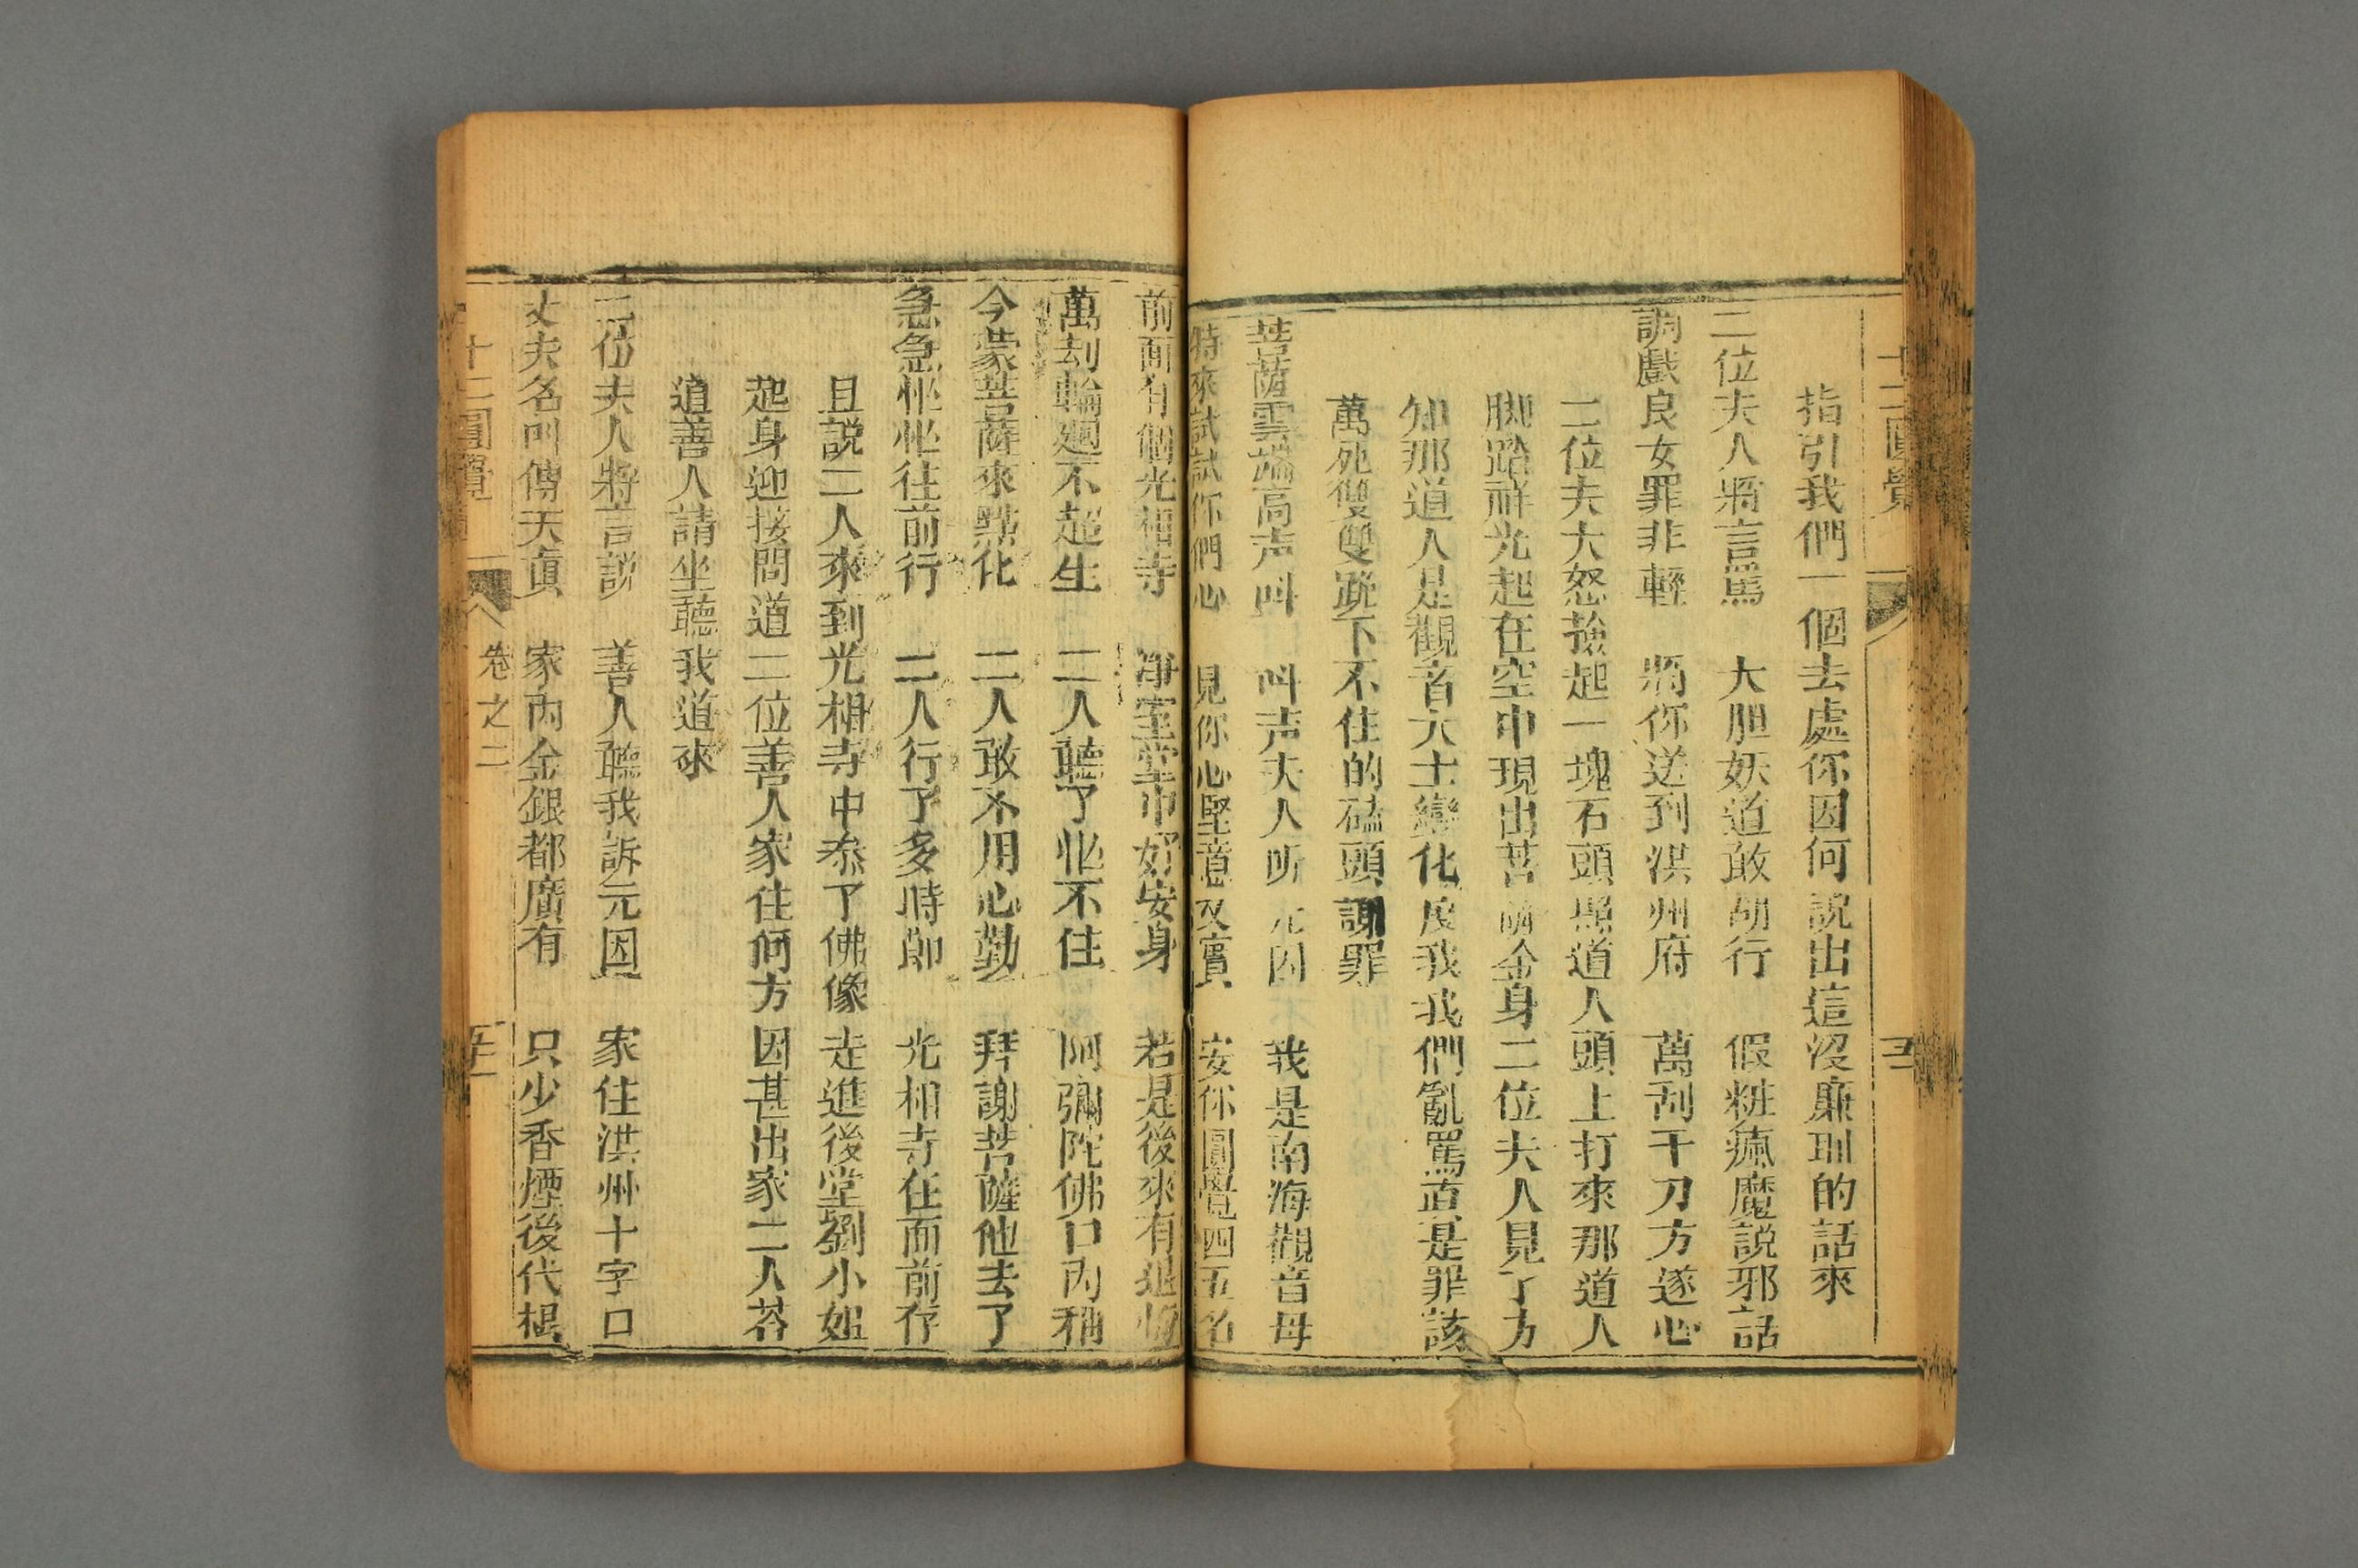 十二圓覺
五
指引我們一個去處你因何説出這沒廉耻的話來
二位夫人將言罵 大胆妖道敢胡行 假粧瘋魔説邪話
調戲良女罪非輕 將你送到洪州府 萬刮千刀方遂心
二位夫人大怒撿起一塊石頭照道人頭上打來那道人
脚踏祥光起在空中現出菩薩金身二位夫人見了方
知那道人是觀音大士變化度我我們亂罵真是罪該
萬死雙雙跪下不住的磕頭謝罪
菩薩雲端高声叫 叫声夫人听元因 我是南海觀音母
特來試試你們心 見你心堅意又實 安你圓覺四五名
前面有個光相寺 淨室堂中好安身 若是後來有退悔
萬刦輪廻不超生 二人聽了忙不住 阿彌陀佛口内稱
今蒙菩薩來點化 二人敢不用心勤 拜謝菩薩他去了
急急忙忙往前行 二人行了多時節 光相寺在面前存
且説二人來到光相寺中叅了佛像走進後堂劉小姐
起身迎接問道二位善人家住何方因甚出家二人荅
道善人請坐聽我道來
二位夫人將言説 善人聽我訴元因 家住洪州十字口
丈夫名叫傅天眞 家内金銀都廣有 只少香煙後代根
十二圓覺
卷之二
五